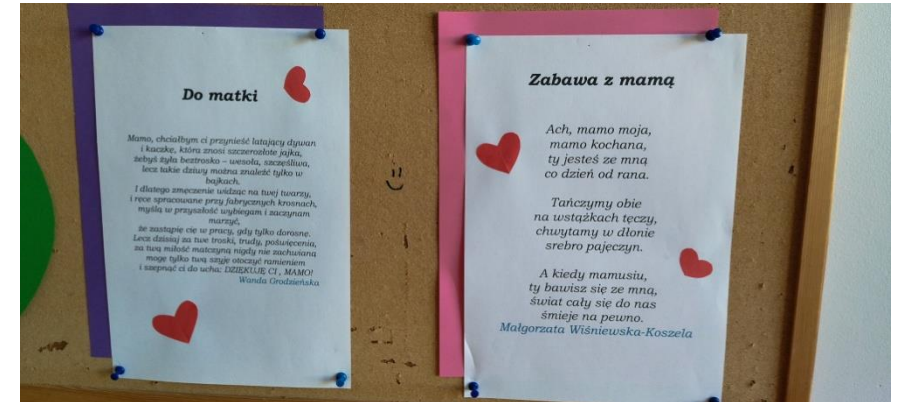 Do matki
Mamo, chciałbym ci przynieść latający dywan
i kaczkę, która znosi szczerozłote jajka,
żebyś żyła beztrosko – wesoła, szczęśliwa,
lecz takie dziwy można znaleźć tylko w
bajkach.
I dlatego zmęczenie widząc na twej twarzy,
i ręce spracowane przy fabrycznych krosnach,
myślą w przyszłość wybiegam i zaczynam
marzyć,
że zastąpię cię w pracy, gdy tylko dorosnę.
Lecz dzisiaj za twe troski, trudy, poświęcenia,
za twą miłość matczyną nigdy nie zachwianą
mogę tylko twą szyję otoczyć ramieniem
i szepnąć ci do ucha: DZIĘKUJĘ CI , MAMO!
Wanda Grodzieńska
Zabawa z mamą
Ach, mamo moja,
mamo kochana,
ty jesteś ze mną
co dzień od rana.
Tańczymy obie
na wstążkach tęczy,
chwytamy w dłonie
srebro pajęczyn.
A kiedy mamusiu,
ty bawisz się ze mną,
świat cały się do nas
śmieje na pewno.
Małgorzata Wiśniewska-Koszela